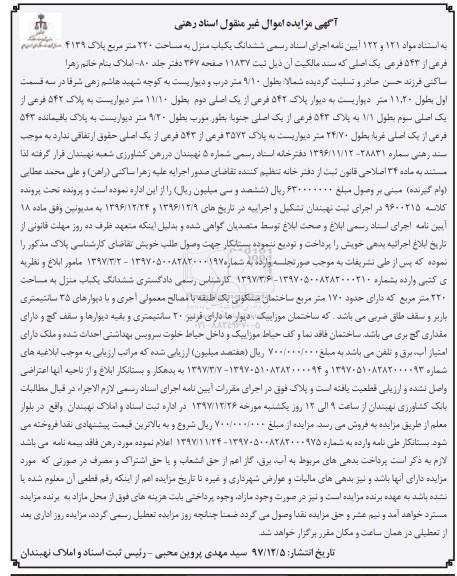 آگهی مزایده اموال غیر منقول اسناد رهنی
به استناد مواد ۱۲۱ و ۱۲۲ آیین نامه اجرای اسناد رسمی ششدانگ یکباب منزل به مساحت ۲۲۰ متر مربع پلاک ۴۱۳۹
فرعی از ۵۴۳ فرعی یک اصلی که سند مالکیت آن ذیل ثبت ۱۱۸۳۷ صفحه ۳۶۷ دفتر جلد ۸۰- املاک بنام خانم زهرا
ساکنی فرزند حسن صادر و تسلیت گردیده شمالا: بطول ۹/۱۰ متر درب و دیواریست به کوچه شهید هاشم زهی شرقا در سه قسمت
اول بطول ۱۱,۲۰ متر دیواریست به دیوار پلاک ۵۴۲ فرعی از یک اصلی دوم بطول ۱۱/۱۰ متر دیواریست به پلاک ۵۴۲ فرعی از
یک اصلی سوم بطول ۱/۱ به پلاک ۵۴۳ فرعی از یک اصلی جنوبا: بطور مورب بطول ۹/۲۰ متر دیواریست به پلاک باقیمانده ۵۴۳
فرعی از یک اصلی غربا: بطول ۲۴/۷۰ متر دیواریست به پلاک ۳۵۷۲ فرعی از ۵۴۳ فرعی از یک اصلی حقوق ارتفاقی ندارد به موجب
سند رهنی سماره ۲۸۸۳۱- ۱۳۹۶/۱۱/۱۲ دفترخانه اسناد رسمی شماره ۵ نهبندان دررهن کشاورزی شعبه نهبندان قرار گرفته لذا
مستند به ماده ۳۴ اصلاحی قانون ثبت از دفتر خانه تنظیم کننده تقاضای صدور اجرایه علیه زهرا ساکنی (راهن) و علی محمد عطایی
(وام گیرنده) مبنی بر وصول مبلغ ۶۳۰۰۰۰۰۰۰ ریال (ششصد و سی میلیون ریال) را از این اداره نموده است و پرونده تحت پرونده
کلاسه ۹۶۰۰۲۱۵ در اجرای ثبت نهبندان تشکیل و اجراییه در تاریخ های ۱۳۹۶/۱۲/۹ و ۱۳۹۶/۱۲/۲۴ به مدیونین وفق ماده ۱۸
آیین نامه اجرای اسناد رسمی ابلاغ و صحت ابلاغ توسط متصدیان گواهی شده و بدلیل اینکه متعهد ظرف ده روز مهلت قانونی از
تاریخ ابلاغ اجرائیه بدهی خویش را پرداخت و تودیع ننموده بستانکار جهت وصول طلب خویش تقاضای کارشناسی پلاک مذکور را
نموده که پس از طی تشریفات به موجب صورتجلسه وارده به شماره ۱۳۹۷۰۵۰۰۸۲۸۲۰۰۰۱۹۷- ۱۳۹۷/۳/۲ مامور ابلاغ و نظریه
ی کتبی وارده بشماره ۱۳۹۷۰۵۰۰۸۲۸۲۰۰۰۲۱۰- ۱۳۹۷/۳/۶ کارشناس رسمی دادگستری ششدانگ یکباب منزل به مساحت
۲۲۰ متر مربع که دارای حدود ۱۷۰ متر مربع ساختمان مسکونی یک طبقه با مصالح معمولی آجری و با دیوارهای ۳۵ سانتیمتری
باربر و سقف طاق ضربی می باشد . که ساختمان موزاییک ، دیوار ها دارای قرنیز ۲۰ سانتیمتری و بقیه دیوارها و سقف گچ و دارای
مقداری گچ بری می باشد. ساختمان فاقد نما و کف حیاط موزاییک و داخل حیاط خلوت سرویس بهداشتی احداث شده و ملک دارای
امتیاز آب، برق و تلفن می باشد به مبلغ ۷۰۰/۰۰۰/۰۰۰ ریال (هفتصد میلیون) ارزیابی شده که مراتب ارزیابی به موجب ابلاغیه های
شماره ۱۳۹۷۰۵۱۰۸۲۸۲۰۰۰۰۹۳ و ۱۳۹۷۰۵۱۰۸۲۸۲۰۰۰۰۹۴- ۱۳۹۷/۳/۷ به بدهکار و بستانکار ابلاغ و از ناحیه آنها اعتراضی
واصل نشده و ارزیابی قطعیت یافته است و پلاک فوق در اجرای مقررات آیین نامه اجرای اسناد رسمی لازم الاجراء در قبال مطالبات
بانک کشاورزی نهبندان از ساعت ۹ الی ۱۲ روز یکشنبه مورخه ۱۳۹۷/۱۲/۲۶ در اداره ثبت اسناد و املاک نهبندان واقع در بلوار
معلم از طریق مزایده به فروش می رسد. مزایده از مبلغ ۷۰۰/۰۰۰/۰۰۰ ریال شروع و به بالاترین قیمت پیشنهادی نقدا فروخته می
شود. بستانکار طی نامه وارده به شماره ۱۳۹۷۰۵۰۰۸۲۸۲۰۰۰۹۷۵- ۱۳۹۷/۱۱/۲۴ اعلام نموده مورد رهن فاقد بیمه نامه می باشد
لازم به ذکر است پرداخت بدهی های مربوط به آب، برق، گاز اعم از حق انشعاب و یا حق اشتراک و مصرف در صورتی که مورد
مزایده دارای آنها باشد و نیز بدهی های مالیات و عوارض شهرداری و غیره تا تاریخ مزایده اعم از اینکه رقم قطعی آن معلوم شده یا
نشده باشد به عهده برنده مزایده است و نیز در صورت وجود مازاد، وجوه پرداختی بابت هزینه های فوق از محل مازاد به برنده مزایده
مسترد خواهد آمد و نیم عشر و حق مزایده نقدا وصول می گردد ضمنا چنانچه روز مزایده تعطیل رسمی گردد، مزایده روز اداری بعد
از تعطیلی در همان ساعت و مکان مقرر برگزار خواهد شد.
تاریخ انتشار: ۹۷/۱۲/۵ سید مهدی پروین محبی - رئیس ثبت اسناد و املاک نهبندان